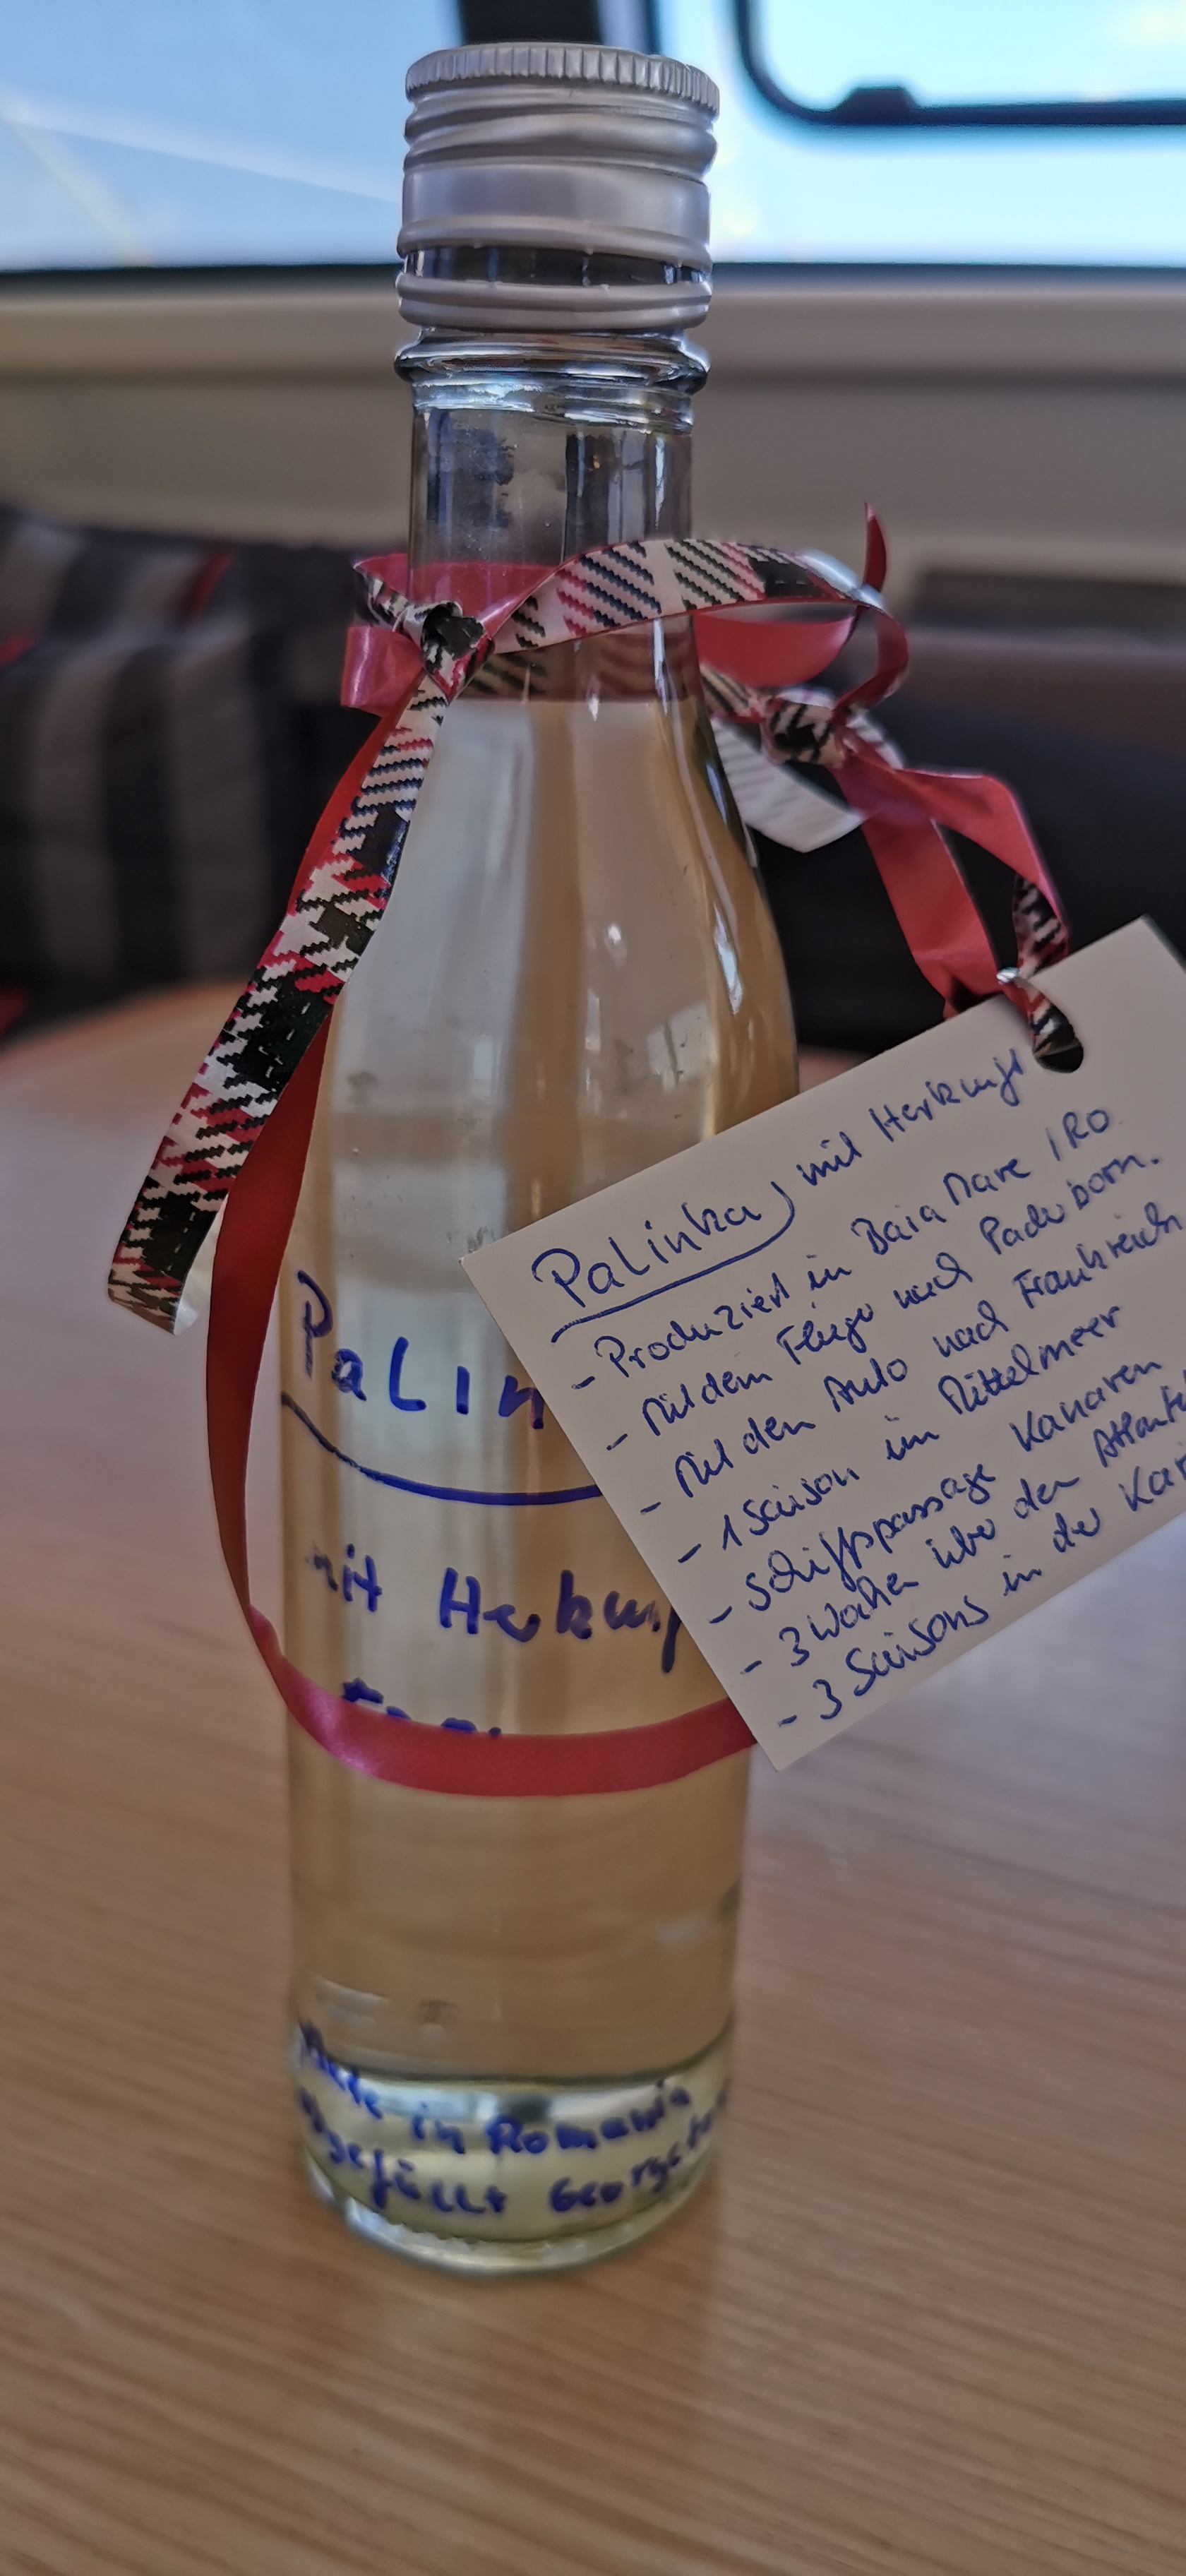 Palinka mit Herkunft
- Produziert in Baia Mare / RO
- Mit dem Flieger nach Paderborn.
- Mit dem Auto nach Frankreich
- 1 Saison im Mittelmeer
- Schiffspassage Kanaren
- 3 Wochen über den
- 3 Saisons in der
PaLin
mit Herkunf
in Romania
abgefüllt